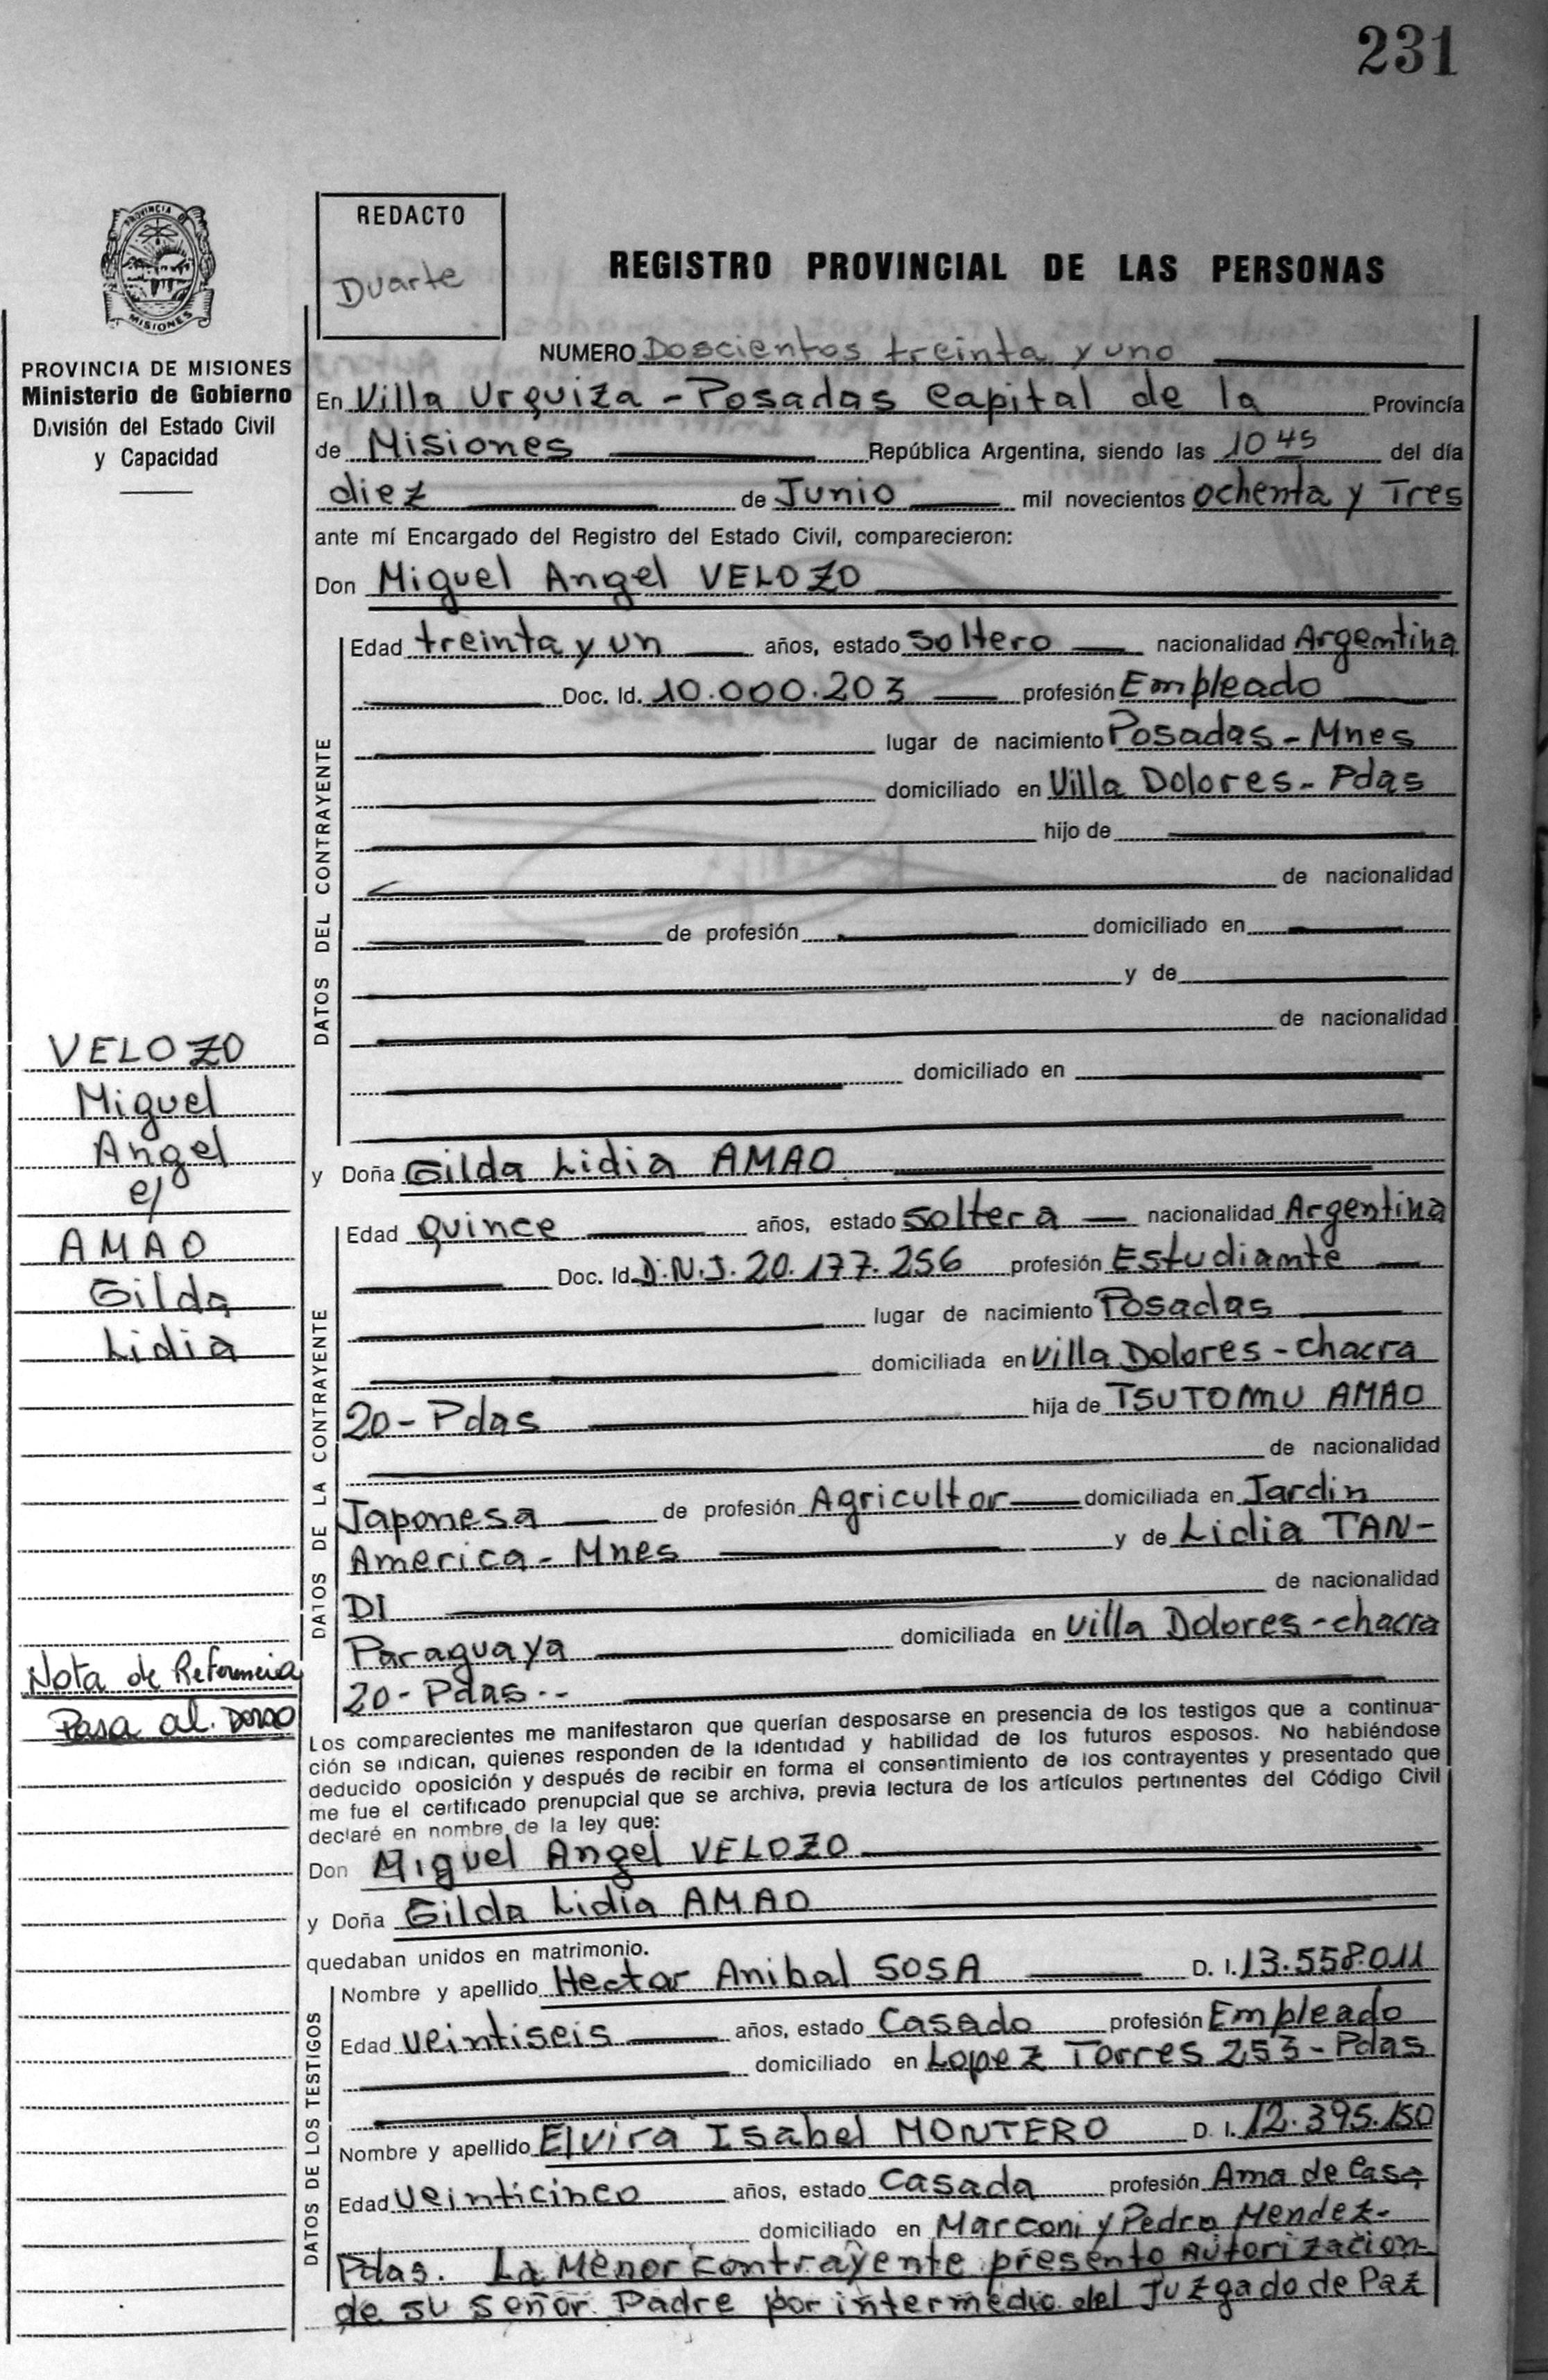 231
PROVINCIA DE
MISIONES
PROVINCIA DE MISIONES
Ministerio de Gobierno
División del Estado Civil
y Capacidad
REDACTO
Duarte
REGISTRO PROVINCIAL DE LAS PERSONAS
NUMERO Doscientos treinta y uno
En Villa Urquiza - Posadas Capital de la Provincia
de Misiones República Argentina, siendo las 10 45 del día
diez de Junio mil novecientos ochenta y Tres
ante mí Encargado del Registro del Estado Civil, comparecieron:
Don Miguel Angel VELOZO
DATOS DEL CONTRAYENTE
Edad treinta y un años, estado soltero nacionalidad Argentina
Doc. Id. 10.000.203 profesión Empleado
lugar de nacimiento Posadas - Mnes
domiciliado en Villa Dolores - Pdas
hijo de
de nacionalidad
de profesión domiciliado en
y de
de nacionalidad
domiciliado en
VELOZO
Miguel
Angel
c/
AMAO
Gilda
Lidia
y Doña Gilda Lidia AMAO
DATOS DE LA CONTRAYENTE
Edad quince años, estado soltera nacionalidad Argentina
Doc. Id. D.N.I. 20.177.256 profesión Estudiante
lugar de nacimiento Posadas
domiciliada en Villa Dolores - chacra
20 - Pdas hija de TSUTOMU AMAO
de nacionalidad
Japonesa de profesión Agricultor domiciliada en Jardin
America - Mnes y de Lidia TAN-
DI de nacionalidad
Paraguaya domiciliada en Villa Dolores - chacra
20 - Pdas. --
Nota de Referencia
Pasa al. Dorso
Los comparecientes me manifestaron que querían desposarse en presencia de los testigos que a continua-
ción se indican, quienes responden de la identidad y habilidad de los futuros esposos. No habiéndose
deducido oposición y después de recibir en forma el consentimiento de los contrayentes y presentado que
me fue el certificado prenupcial que se archiva, previa lectura de los artículos pertinentes del Código Civil
declaré en nombre de la ley que:
Don Miguel Angel VELOZO
y Doña Gilda Lidia AMAO
quedaban unidos en matrimonio.
DATOS DE LOS TESTIGOS
Nombre y apellido Hector Anibal SOSA D. I. 13.558.011
Edad veintiseis años, estado Casado profesión Empleado
domiciliado en Lopez Torres 253 - Pdas
Nombre y apellido Elvira Isabel MONTERO D. I. 12.395.150
Edad veinticinco años, estado Casada profesión Ama de Casa
domiciliado en Marconi y Pedro Mendez -
Pdas. La Menor contrayente presento Autorizacion
de su señor Padre por intermedio del Juzgado de Paz